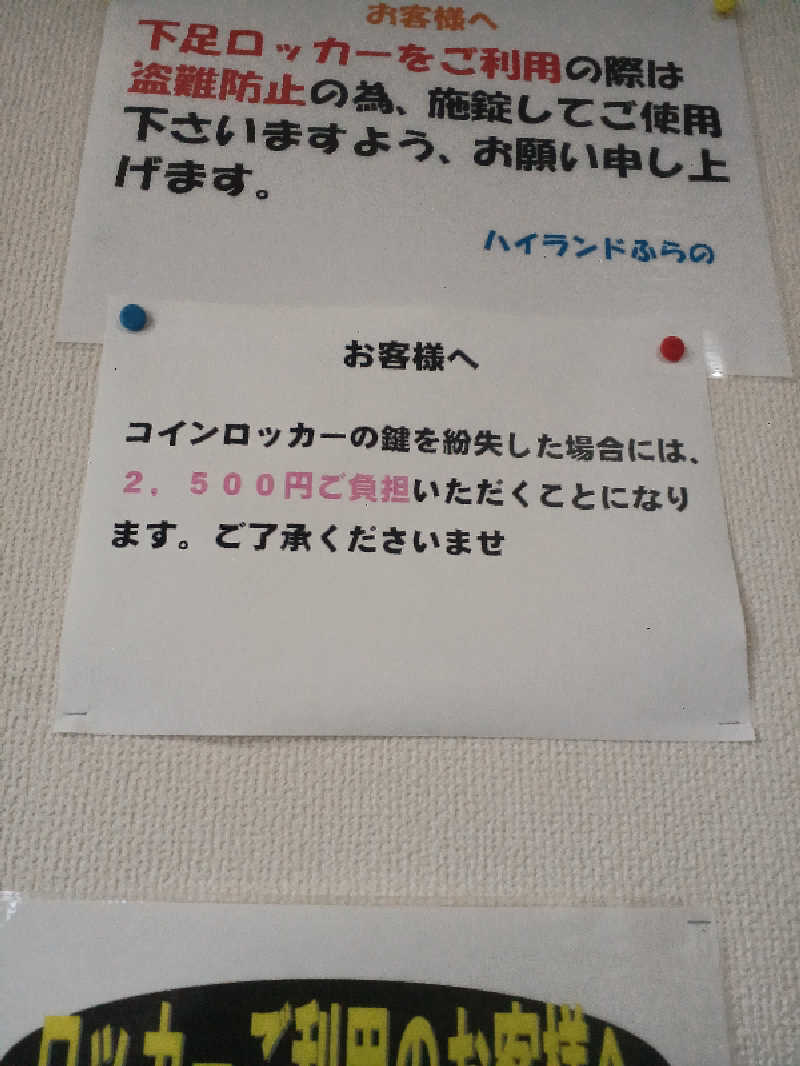 お客様へ
下足ロッカーをご利用の際は
盗難防止の為、施錠してご使用
下さいますよう、お願い申し上
げます。
ハイランドふらの
お客様へ
コインロッカーの鍵を紛失した場合には、
２，５００円ご負担いただくことになり
ます。ご了承くださいませ
ロッカーご利用のお客様へ